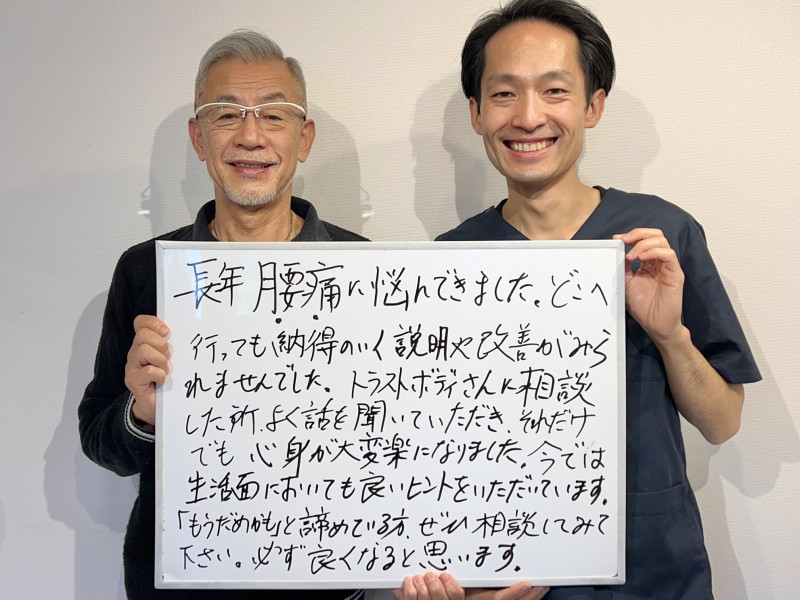 長年腰痛に悩んできました。どこへ
行っても納得のいく説明や改善がみら
れませんでした。トラストボディさんに相談
した所、よく話を聞いていただき、それだけ
でも心身が大変楽になりました。今では
生活面においても良いヒントをいただいています。
「もうだめかも」と諦めている方、ぜひ相談してみて
下さい。必ず良くなると思います。